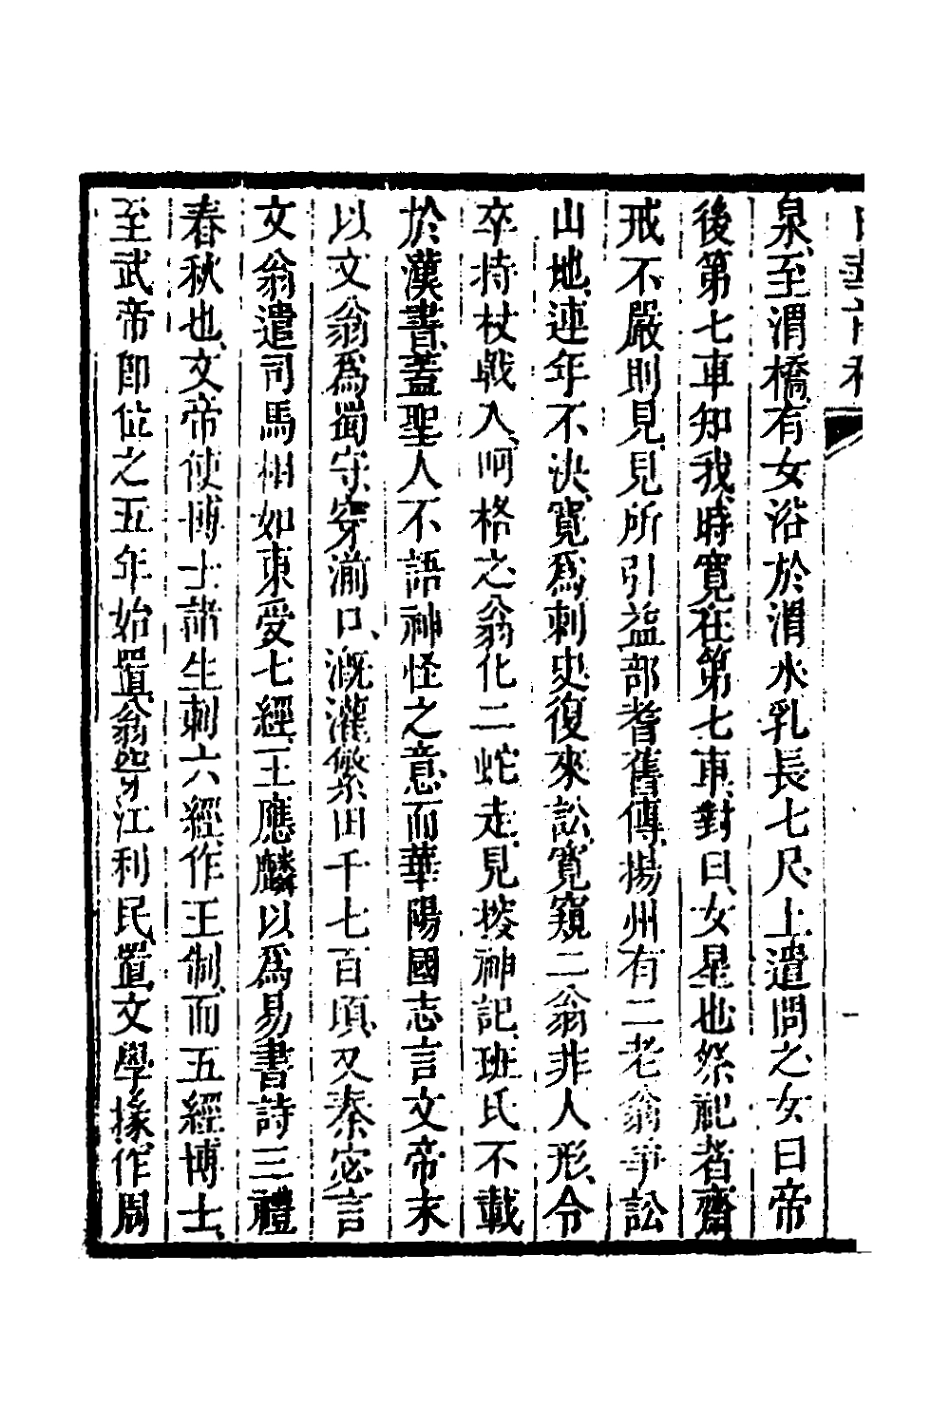 泉、至渭橋、有女浴於渭水、乳長七尺、上遣問之、女曰、帝
後第七車知我、時寬在第七車、對曰、女星也、祭祀者齋
戒不嚴則見、見所引益部耆舊傳、揚州有二老翁爭訟
山地、連年不決、寬爲刺史、復來訟、寬窺二翁非人形、令
卒持杖戟入、呵格之、翁化二蛇走、見搜神記、班氏不載
於漢書、蓋聖人不語神怪之意、而華陽國志言、文帝末
以文翁爲蜀守、穿湔口、溉灌繁田千七百頃、又秦宓言
文翁遣司馬相如東受七經、王應麟以爲易書詩三禮
春秋也、文帝使博士諸生刺六經、作王制、而五經博士、
至武帝即位之五年始置、翁興江利民、置文學掾、作周